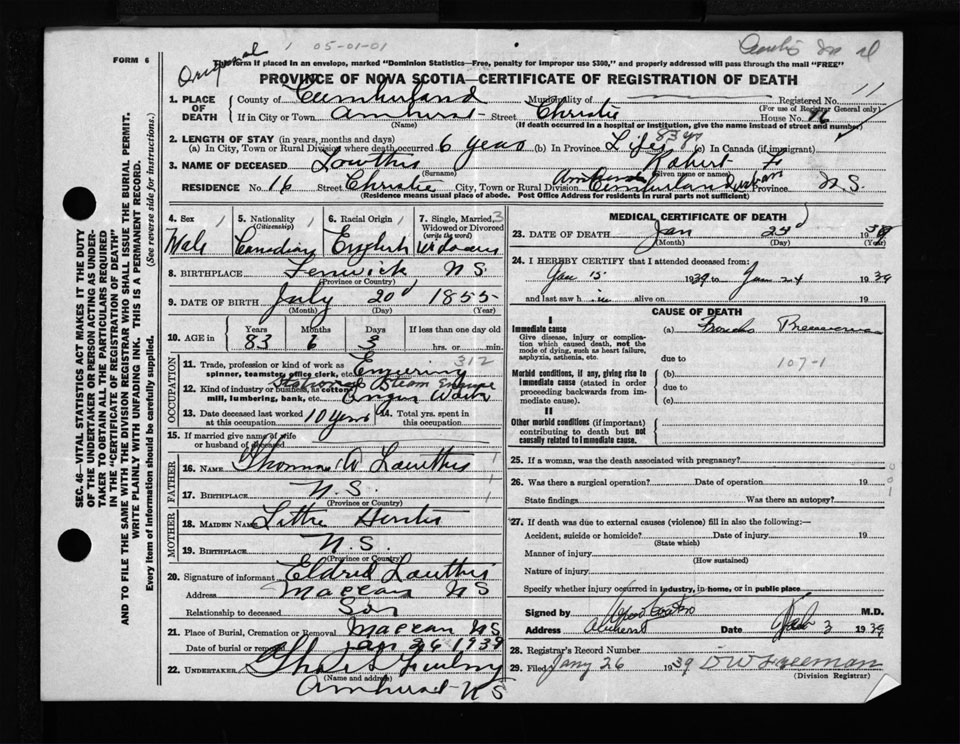 Original 1 05-01-01
FORM 6
This form if placed in an envelope, marked "Dominion Statistics—Free, penalty for improper use $300," and properly addressed will pass through the mail "FREE"
PROVINCE OF NOVA SCOTIA—CERTIFICATE OF REGISTRATION OF DEATH
1. PLACE OF DEATH
County of Cumberland Municipality of Registered No. 11
(For use of Registrar General only)
If in City or Town Amherst Street Christie House No. 16
(Name) (If death occurred in a hospital or institution, give the name instead of street and number)
2. LENGTH OF STAY (in years, months and days)
(a) In City, Town or Rural Division where death occurred 6 years (b) In Province Life 83 yr (c) In Canada (if immigrant)
3. NAME OF DECEASED Lowthis Robert
(Surname) (Given name or names)
RESIDENCE No. 16 Street Christie City, Town or Rural Division Amherst Cumberland Province N S.
(Residence means usual place of abode. Post Office Address for residents in rural parts not sufficient)
4. Sex 1 5. Nationality 1 6. Racial Origin 1 7. Single, Married, 3
(Citizenship) Widowed or Divorced
(write the word)
Male Canadian English Widower
8. BIRTHPLACE Fenwick N S.
(Province or Country)
9. DATE OF BIRTH July 20 1855
(Month) (Day) (Year)
10. AGE in Years Months Days If less than one day old
83 6 3 hrs. or min.
OCCUPATION
11. Trade, profession or kind of work as 312
spinner, teamster, office clerk, etc.
12. Kind of industry or business, as cotton Stationary Steam Engine
mill, lumbering, bank, etc. Work
13. Date deceased last worked at this occupation 10 years 14. Total yrs. spent in this occupation
15. If married give name of wife
or husband of deceased
FATHER
16. NAME Thomas W Lowthis 1
17. BIRTHPLACE N. S. 1
(Province or Country)
MOTHER
18. MAIDEN NAME
19. BIRTHPLACE N. S.
(Province or Country)
20. Signature of informant Eldred Lowthis
Address Maccan N S
Relationship to deceased Son
21. Place of Burial, Cremation or Removal Maccan N S
Date of burial or removal Jan 26 1939
22. UNDERTAKER
(Name and address)
Amherst N S
MEDICAL CERTIFICATE OF DEATH
23. DATE OF DEATH Jan 19 39
(Month) (Day) (Year)
24. I HEREBY CERTIFY that I attended deceased from:
Jan 15 1939 to Jan 24 1939
and last saw h im alive on 19
CAUSE OF DEATH
I
Immediate cause
Give disease, injury or complication which caused death, not the mode of dying, such as heart failure, asphyxia, asthenia, etc.
(a) Broncho Pneumonia
due to
107-1
Morbid conditions, if any, giving rise to immediate cause (stated in order proceeding backwards from immediate cause).
(b)
due to
(c)
II
Other morbid conditions (if important) contributing to death but not causally related to immediate cause.
25. If a woman, was the death associated with pregnancy?
26. Was there a surgical operation? Date of operation 19
State findings Was there an autopsy?
27. If death was due to external causes (violence) fill in also the following:—
Accident, suicide or homicide? Date of injury 19
(State which)
Manner of injury
(How sustained)
Nature of injury
Specify whether injury occurred in industry, in home, or in public place
Signed by M.D.
Address Amherst Date Feb 3 1939
28. Registrar's Record Number
29. Filed Jany 26 1939 D W Freeman
(Division Registrar)
SEC. 46—VITAL STATISTICS ACT MAKES IT THE DUTY
OF THE UNDERTAKER OR PERSON ACTING AS UNDER-
TAKER TO OBTAIN ALL THE PARTICULARS REQUIRED
IN THE "CERTIFICATE OF REGISTRATION OF DEATH"
AND TO FILE THE SAME WITH THE DIVISION REGISTRAR WHO SHALL ISSUE THE BURIAL PERMIT.
WRITE PLAINLY WITH UNFADING INK. THIS IS A PERMANENT RECORD.
Every item of Information should be carefully supplied. (See reverse side for instructions.)